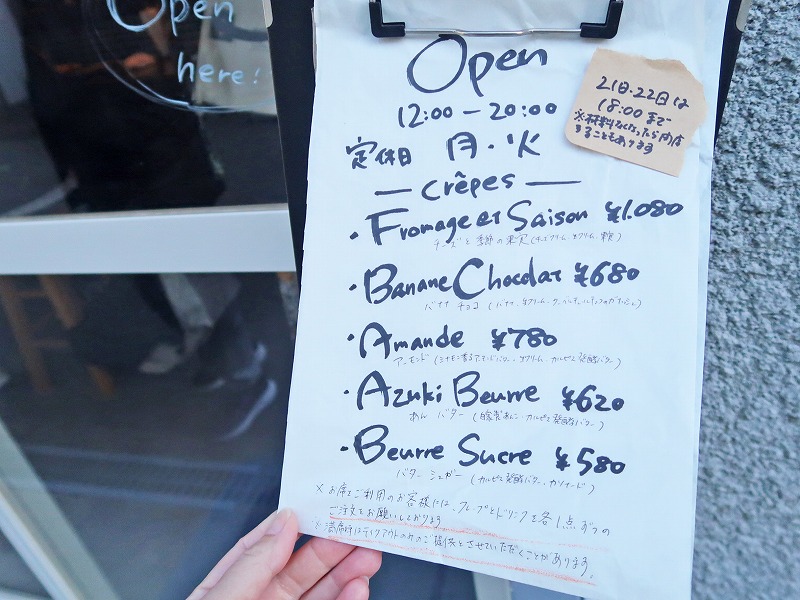 Open
here!
Open
12:00 - 20:00
定休日 月・火
21日・22日は
18:00まで
※材料なくなったら閉店
することもあります
— crêpes —
・Fromage et Saison ¥1.080
チーズと季節の果実(チーズクリーム・生クリーム・果実)
・Banane Chocolat ¥680
バナナ チョコ (バナナ・生クリーム・
・Amande ¥780
アーモンド (シナモン香るアーモンドバター・生クリーム・カルピス発酵バター)
・Azuki Beurre ¥620
あん バター (自家製あんこ・カルピス発酵バター)
・Beurre Sucre ¥580
バター シュガー (カルピス発酵バター・カソナード)
※お席をご利用のお客様には、クレープとドリンクを各1点ずつの
ご注文をお願いしております
※満席時はテイクアウトのみのご提供とさせていただくことがあります。